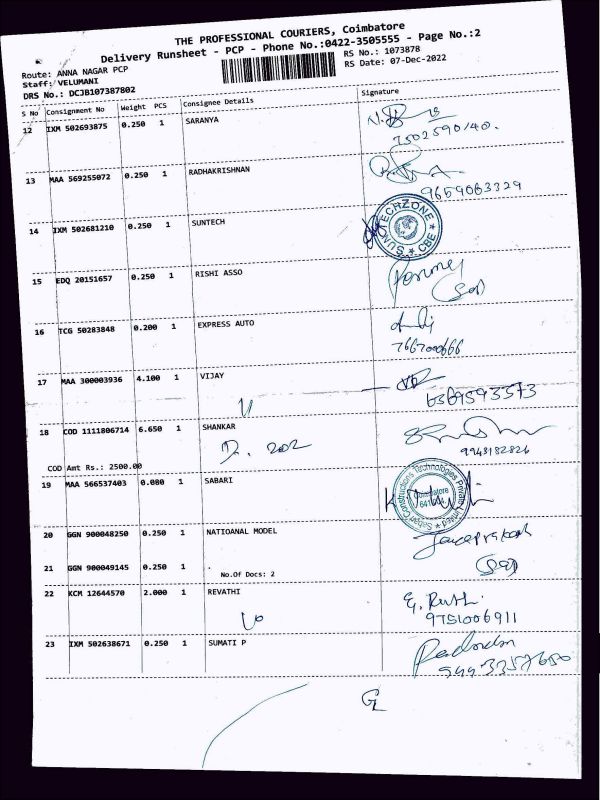 THE PROFESSIONAL COURIERS, Coimbatore
Delivery Runsheet - PCP - Phone No.:0422-3505555 - Page No.:2
Route: ANNA NAGAR PCP
RS No.: 1073878
Staff: VELUMANI
RS Date: 07-Dec-2022
DRS No.: DCJB107387802
S No Consignment No Weight PCS Consignee Details Signature
12 IXM 502693875 0.250 1 SARANYA
7502590140.
13 MAA 569255072 0.250 1 RADHAKRISHNAN
9659063329
14 IXM 502681210 0.250 1 SUNTECH
SUNOTECHZONE ★ CBE ★
15 EDQ 20151657 0.250 1 RISHI ASSO
16 TCG 50283848 0.200 1 EXPRESS AUTO
7667000666
17 MAA 300003936 4.100 1 VIJAY
6369593573
18 COD 1111806714 6.650 1 SHANKAR
D. 202
9943182826
COD Amt Rs.: 2500.00
19 MAA 566537403 0.080 1 SABARI
Sabari Constructions Technologies Private Limited ★
Coimbatore
20 GGN 900048250 0.250 1 NATIOANAL MODEL
21 GGN 900049145 0.250 1 .
No.Of Docs: 2
22 KCM 12644570 2.000 1 REVATHI
9751006911
23 IXM 502638671 0.250 1 SUMATI P